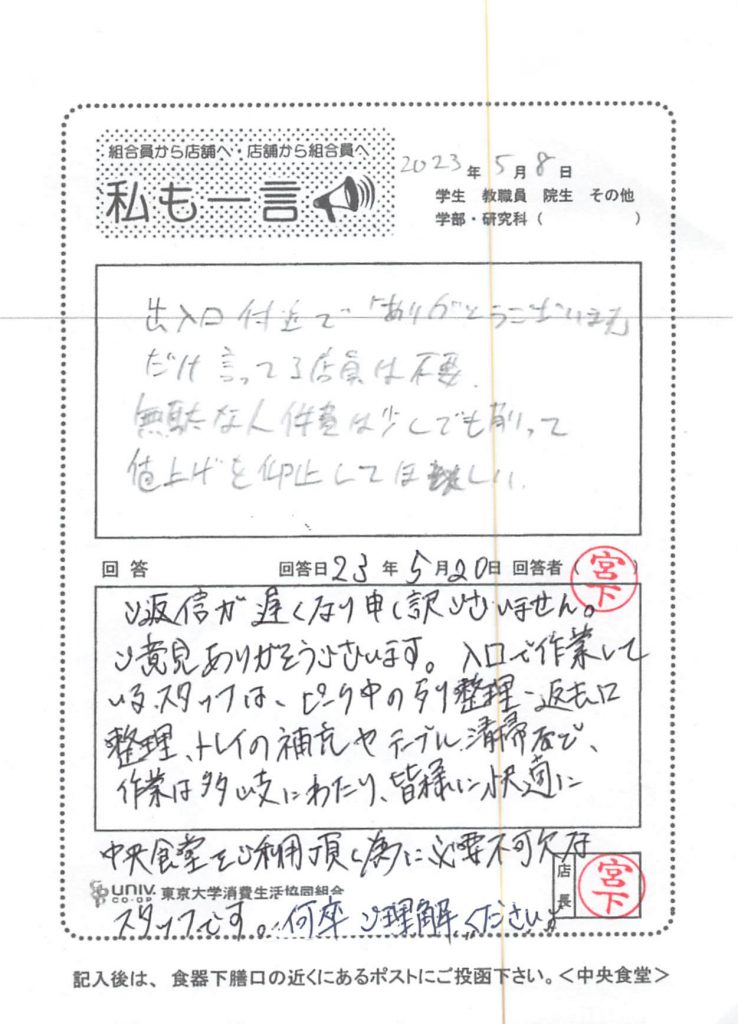 組合員から店舗へ・店舗から組合員へ
私も一言
2023年5月8日
学生 教職員 院生 その他
学部・研究科（ ）
出入口付近で「ありがとうございます」
だけ言ってる店員は不要。
無駄な人件費は少しでも削って
値上げを抑止してほしい。
回答 回答日23年5月20日 回答者（宮下）
ご返信が遅くなり申し訳ございません。
ご意見ありがとうございます。入口で作業して
いるスタッフは、ピーク中の列整理・返却口
整理、トレイの補充やテーブル清掃など、
作業は多岐にわたり、皆様に快適に
中央食堂をご利用頂く為に必要不可欠な
店長 宮下
UNIV. CO-OP 東京大学消費生活協同組合
スタッフです。何卒ご理解ください。
記入後は、食器下膳口の近くにあるポストにご投函下さい。＜中央食堂＞